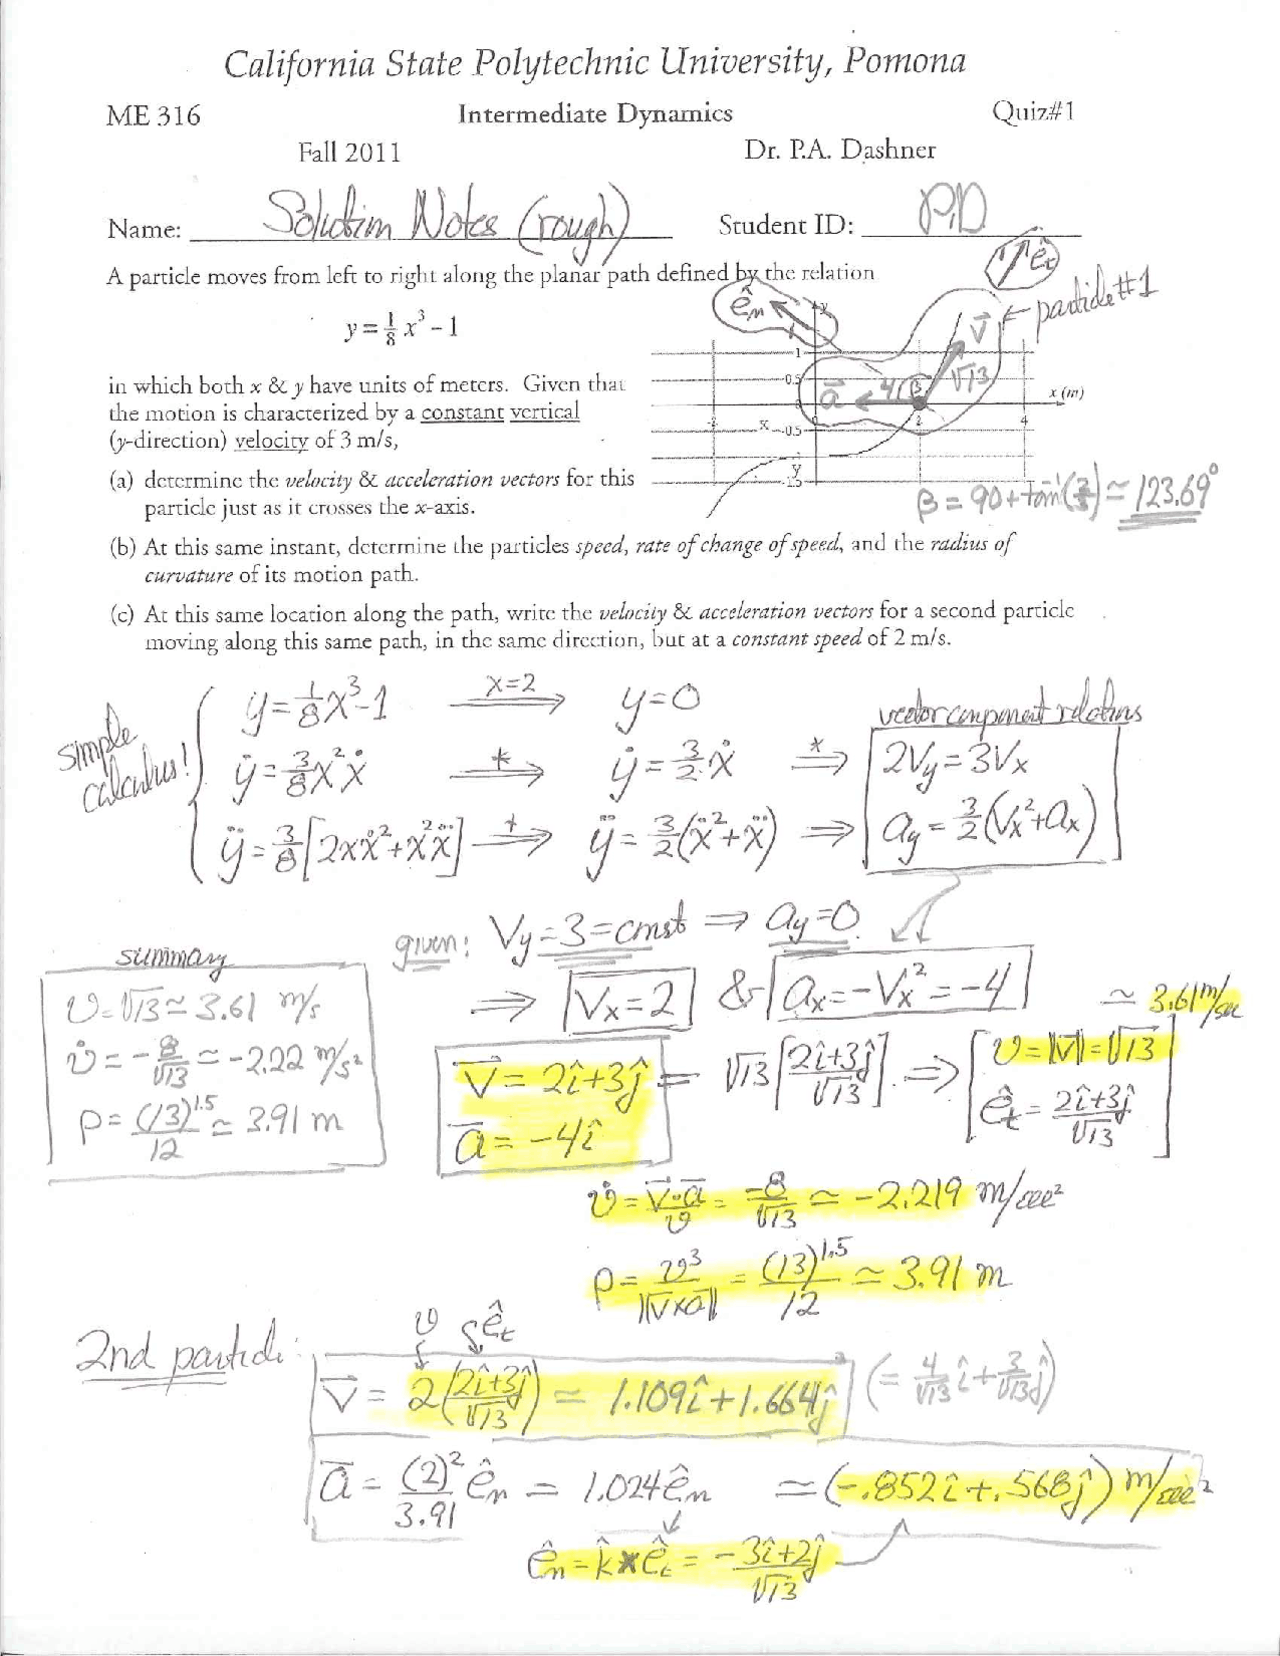 California State Polytechnic University, Pomona
ME 316 Intermediate Dynamics Quiz#1
Fall 2011 Dr. P.A. Dashner
Name: Solution Notes (rough) Student ID: PAD
A particle moves from left to right along the planar path defined by the relation
y = 1/8 x³ − 1
ê_t
ê_n
particle #1
in which both x & y have units of meters. Given that
the motion is characterized by a constant vertical
(y-direction) velocity of 3 m/s,
y
1
0.5
v̄
√13
ā
4
β
x (m)
2
4
x
-0.5
y
β = 90 + tan⁻¹(2/3) ≃ 123.69°
(a) determine the velocity & acceleration vectors for this
particle just as it crosses the x-axis.
(b) At this same instant, determine the particles speed, rate of change of speed, and the radius of
curvature of its motion path.
(c) At this same location along the path, write the velocity & acceleration vectors for a second particle
moving along this same path, in the same direction, but at a constant speed of 2 m/s.
simple calculus!
y = 1/8 x³ - 1 x=2 ⟹ y = 0
vector component relations
ẏ = 3/8 x² ẋ ⟹ ẏ = 3/2 ẋ ⟹ 2Vy = 3Vx
ÿ = 3/8 [2xẋ² + x²ẍ] ⟹ ÿ = 3/2 (ẋ² + ẍ) ⟹ ay = 3/2 (Vx² + ax)
given: Vy = 3 = const ⟹ ay = 0
⟹ Vx = 2 & ax = -Vx² = -4
summary
v = √13 ≃ 3.61 m/s
v̇ = -8/√13 ≃ -2.22 m/s²
ρ = (13)^1.5/12 ≃ 3.91 m
≃ 3.61 m/sec
v̄ = 2î + 3ĵ = √13 [(2î + 3ĵ)/√13] ⟹ v = |v̄| = √13
ā = -4î
ê_t = (2î + 3ĵ)/√13
v̇ = v̄·ā/v = -8/√13 ≃ -2.219 m/sec²
ρ = v³/||v̄×ā|| = (13)^1.5/12 ≃ 3.91 m
2nd particle:
v ê_t
v̄ = 2((2î + 3ĵ)/√13) ≃ 1.109î + 1.664ĵ (= 4/√13 î + 3/√13 ĵ)
ā = (2)²/3.91 ê_n = 1.024 ê_n ≃ (-.852î + .568ĵ) m/sec²
ê_n = k̂ × ê_t = (-3î + 2ĵ)/√13